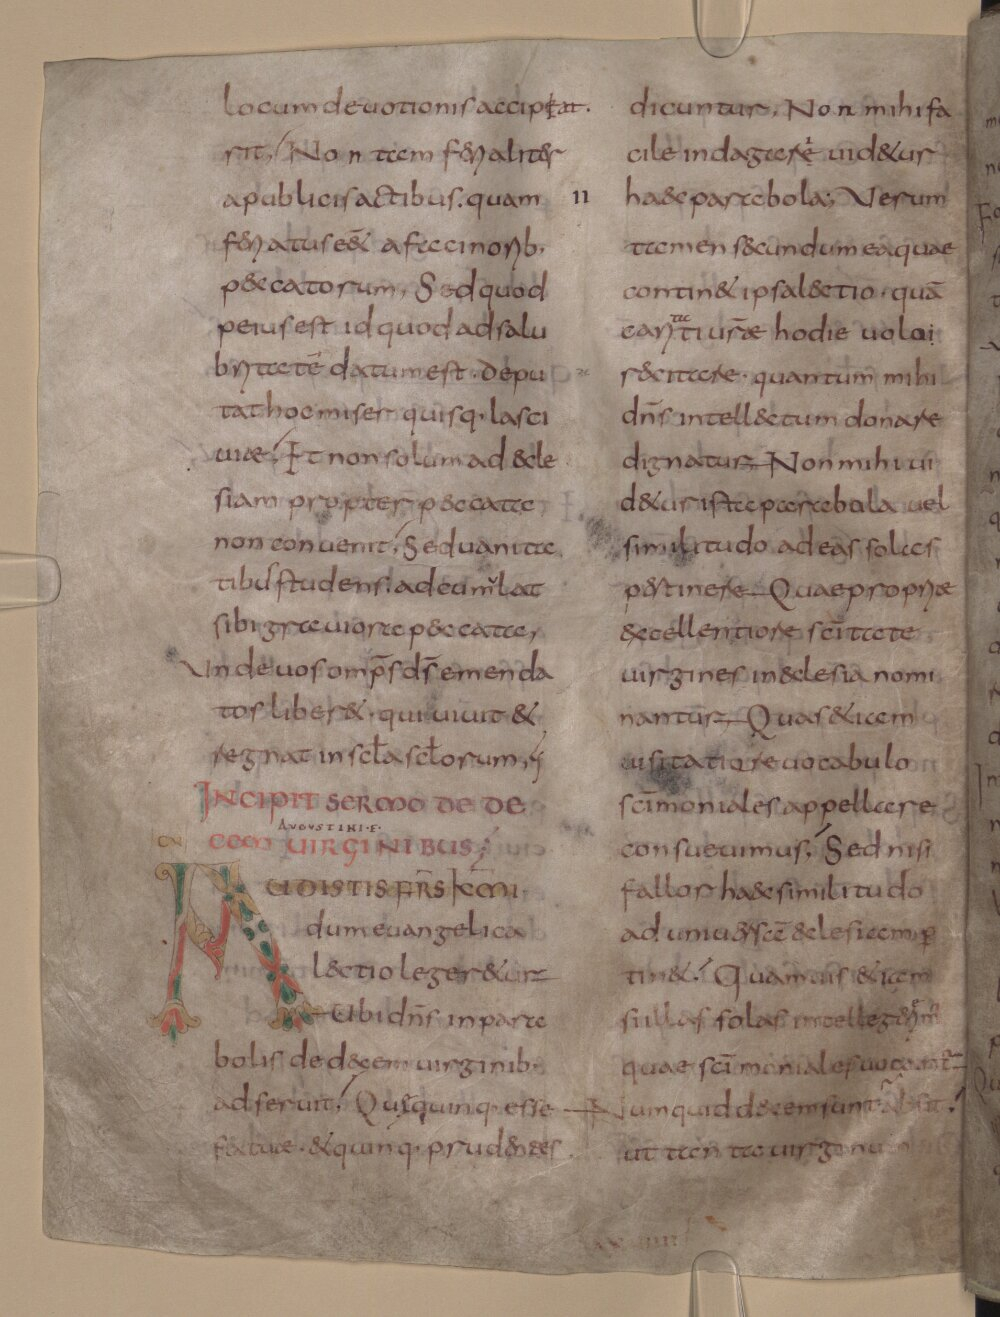 locum deuotionis accipiat.
sit; Non tam ferialiter
a publicis actibus. quam
feriatus e& a facinorib;
peccatorum, Sed quod
peius est id quod ad salu
britatē datum est. depu
tat hoc miser quisq. lasci
uiae; Et non solum ad ecle
siam propter peccata
non conuenit; Sed uanita
tibus studens. ad cumulat
sibi grauiora peccata,
Unde uos omp̄s ds̄ emenda
tos liber&. qui uiuit &
regnat in scła scłorum,
INCIPIT SERMO DE DE
AUGUSTINI E.
CEM UIRGINIBUS;
AUDISTIS FR̄S K̄MI.
dum euangelica
lectio leger&ur
Ubi dn̄s in para
bolis de decem uirginib.
adseruit; Quęquinq. esse
fatuae. & quinq. prudentes
dicuntur, Non mihi fa
cile indagare uid&ur
II
haec parabola; Verum
tamen secundum ea quae
contin& ipsa lectio. quā
caritati ur̄ae hodie uolui
recitare. quantum mihi
dn̄s intellectum donare
dignatur Non mihi ui
d&ur ista parabola uel
similitudo ad eas solas
pertinere Quae propriae
excellentiore scītate
uirgines in eclesia nomi
nantur Quas &iam
usitatiore uocabulo
scīmoniales appellare
consueuimus; Sed nisi
fallor haec similitudo
ad uniuersā eclesiam p̄
tin&; Quamuis &iam
si illas solas intellegam̄
quae scīmoniales uocant̄
Numquid decem sunt absit;
ut tanta uirginum